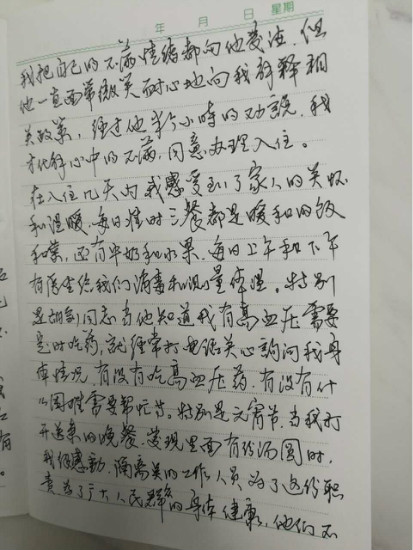 年 月 日 星期
我把自己的不满情绪都向他发泄，但
他一直面带微笑耐心地向我解释相
关政策，经过他半个小时的劝说，我
才化解心中的不满，同意办理入住。
在入住几天内我感受到了家人的关怀
和温暖，每日准时三餐都是暖和的饭
和菜，还有牛奶和水果，每日上午和下午
有医生给我们消毒和测量体温。特别
是胡剑同志当他知道我有高血压需要
是时吃药，就经常打电话关心询问我身
体情况，有没有吃高血压药，有没有什
么困难需要帮忙等。特别是元宵节，当我打
开送来的晚餐，发现里面有份汤圆时，
我很感动，隔离点的工作人员，为了这份职
责为了广大人民群众的身体健康，他们不